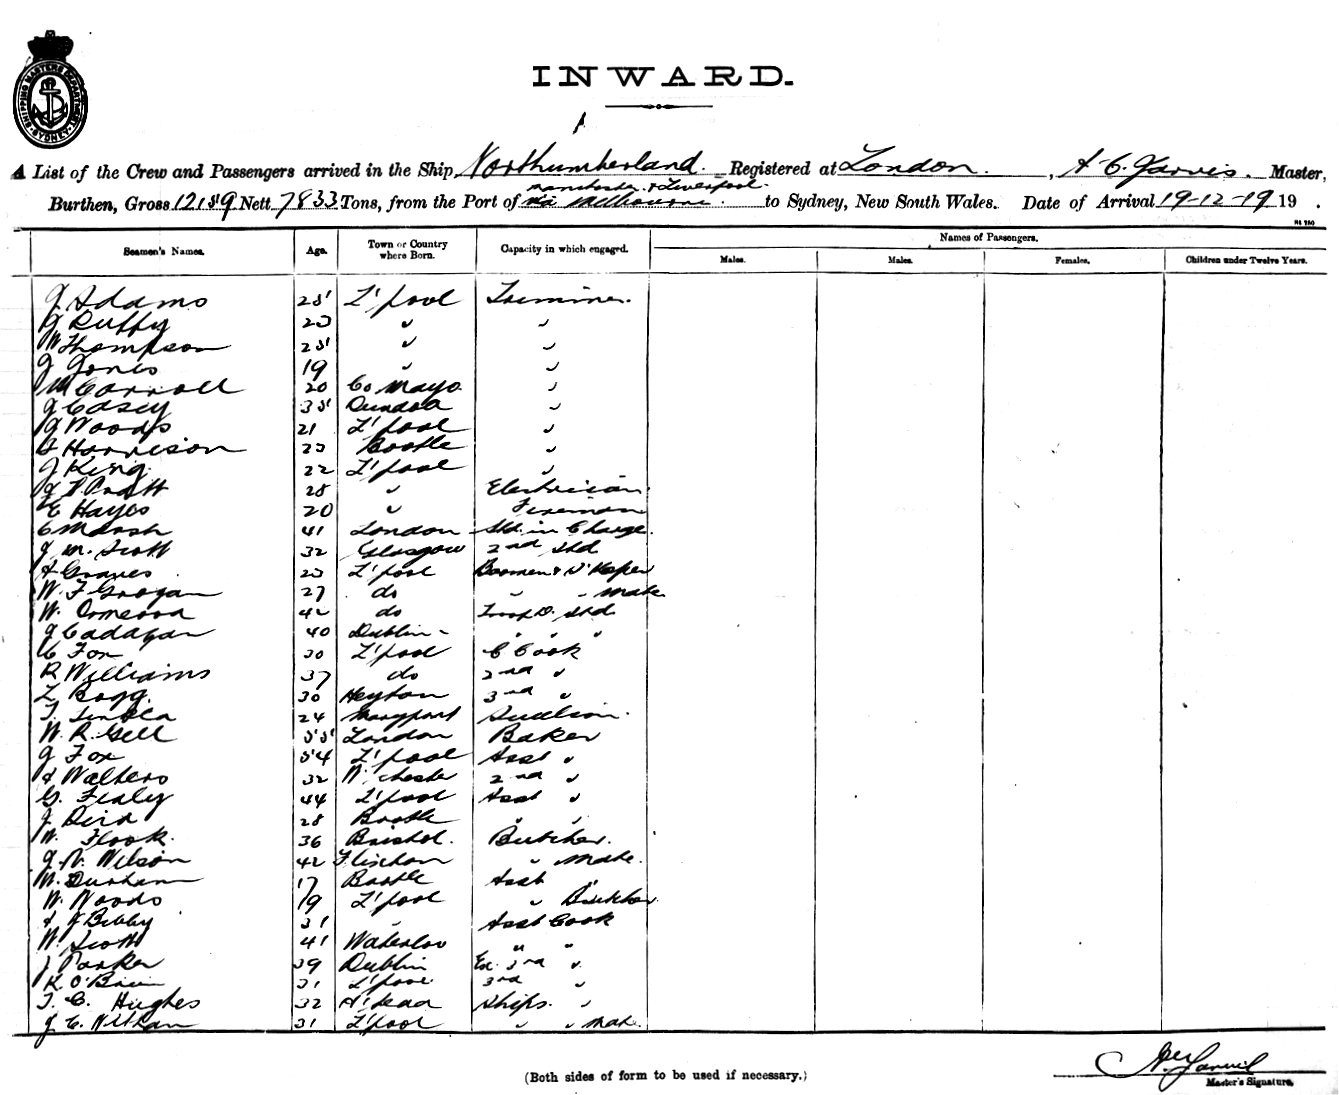 SHIPPING MASTERS DEPARTMENT SYDNEY
INWARD.
A List of the Crew and Passengers arrived in the Ship, Northumberland. Registered at London. , A C. Jarvis. Master,
manchester & Liverpool
Burthen, Gross 12159 Nett 7833 Tons, from the Port of via Melbourne. to Sydney, New South Wales. Date of Arrival 19-12-19 19 .
Seamen's Names. Age. Town or Country where Born. Capacity in which engaged. Names of Passengers.
Males. Males. Females. Children under Twelve Years.
J Adams 25 L'pool Trimmer.
J Duffy 23 " "
W Thompson 25 " "
J Jones 19 " "
M Carroll 20 Co Mayo "
J Casey 35 "
J Woods 21 L'pool "
Harrison 23 Bootle "
J King 22 L'pool "
J Pratt 28 " Electrician
E Hayes 20 " Fireman
C Marsh 41 London Std. in Charge
J M. Scott 32 Glasgow 2nd Std
A Graves 23 L'pool
W. F Grogan 27 do " " Mate
W. Ormerod 42 do Troop D. Std.
J Cadagan 40 Dublin " " "
C Fox 30 L'pool C Cook
R Williams 37 do 2nd "
L Bagg. 30 Heyton 3rd "
T. 24 Maryport
W. R. Gell 55 London Baker
J Fox 54 L'pool Asst "
A Walters 32 W'chester 2nd "
G. Fealy 44 L'pool Asst "
J Bird 28 Bootle " "
W. Flook. 36 Bristol. Butcher.
J. W. Wilson 42 " Mate.
M. Durham 17 Bootle Asst "
W. Woods 19 L'pool " Butcher
A J Bibby 31 " Asst Cook
W. Scott 41 Waterloo " "
J Parker 39 Dublin Ex. 3rd "
K. O'Brien 31 L'pool 3rd "
T. C. Hughes 32 B'head Ships. "
J C. 31 L'pool " " Mate.
(Both sides of form to be used if necessary.)
Master's Signature.